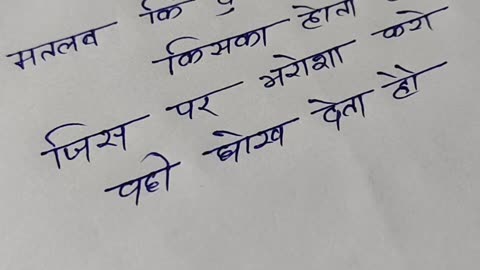 मतलव कि
किसका होता
जिस पर भरोशा करो
वही धोख देता हौ